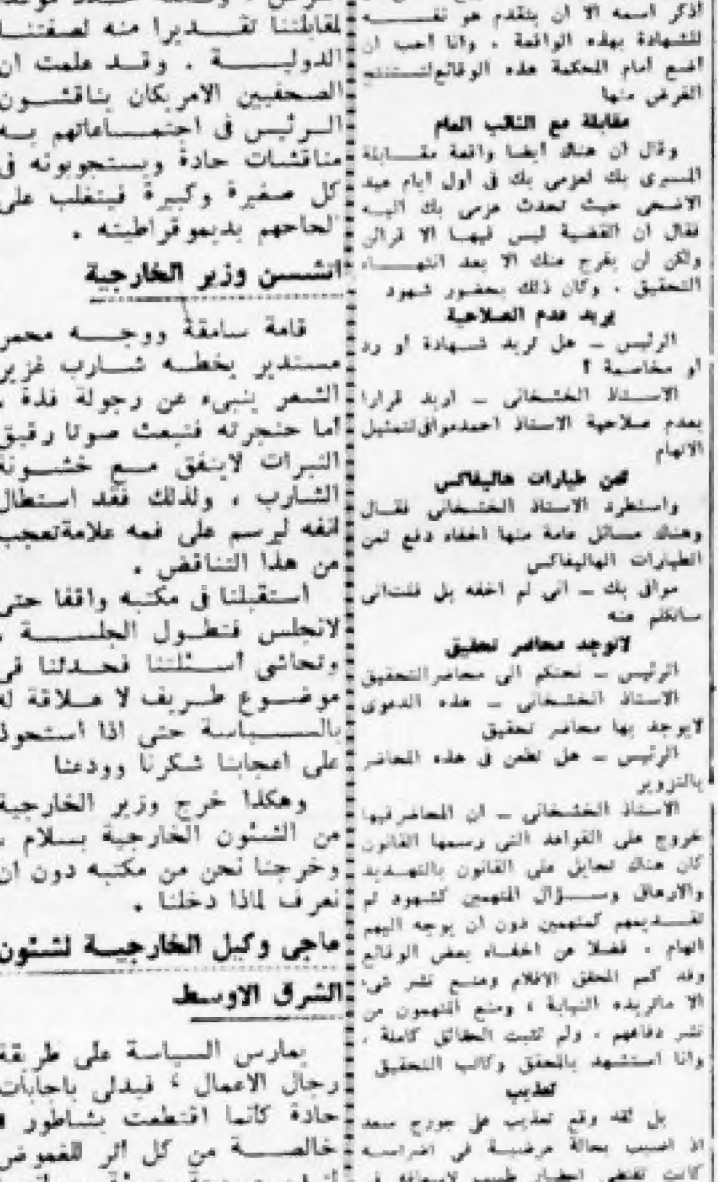 اذكر اسمه الا ان يتقدم هو نفسه
للشهادة بهذه الواقعة . وانا احب ان
اضع أمام المحكمة هذه الوقائع لتستنتج
الغرض منها
مقابلة مع النائب العام
وقال ان هناك ايضا واقعة مقابلة
المسرى بك لعزمى بك فى أول ايام عيد
الاضحى حيث تحدث عزمى بك اليه
فقال ان القضية ليس فيها الا قرائن
ولكن لن يفرج عنك الا بعد انتهاء
التحقيق . وكان ذلك بحضور شهود
يريد عدم الصلاحية
الرئيس ــ هل تريد شهادة أو رد
او مخاصمة ؟
الاستاذ الخشخانى ــ اريد قرارا
بعدم صلاحية الاستاذ احمد موافى لتمثيل
الاتهام
ثمن طيارات هاليفاكس
واستطرد الاستاذ الخشخانى فقال
وهناك مسائل عامة منها اخفاء دفع ثمن
الطيارات الهاليفاكس
موافى بك ــ انى لم اخفه بل قلت انى
سأتكلم عنه
لاتوجد محاضر تحقيق
الرئيس ــ نحتكم الى محاضر التحقيق
الاستاذ الخشخانى ــ هذه الدعوى
لايوجد بها محاضر تحقيق
الرئيس ــ هل تطعن فى هذه المحاضر
بالتزوير
الاستاذ الخشخانى ــ ان المحاضر فيها
خروج على القواعد التى رسمها القانون
كان هناك تحايل على القانون بالتهديد
والارهاق وسؤال المتهمين كشهود ثم
تقديمهم كمتهمين دون ان يوجه اليهم
اتهام . فضلا عن اخفاء بعض الوقائع
وقد كمم المحقق الاقلام ومنع نشر شىء
الا ماتريده النيابة ، ومنع المتهمون من
نشر دفاعهم . ولم تثبت الحقائق كاملة .
وانا استشهد بالمحقق وكاتب التحقيق
تعذيب
بل لقد وقع تعذيب على جورج سعد
اذ اصيب بحالة مرضية فى اضراسه
كانت تقتضى احضار طبيب لاسعافه
لمقابلتنا تقديرا منه لصفتنا
الدولية . وقد علمت ان
الصحفيين الامريكان يناقشون
الرئيس فى اجتماعاتهم به
مناقشات حادة ويستجوبونه فى
كل صغيرة وكبيرة فيتغلب على
الحاحهم بديموقراطيته .
اتشسن وزير الخارجية
قامة سامقة ووجه محمر
مستدير يخطه شارب غزير
الشعر ينبىء عن رجولة فذة .
أما حنجرته فتبعث صوتا رقيق
النبرات لايتفق مع خشونة
الشارب ، ولذلك فقد استطال
أنفه ليرسم على فمه علامة تعجب
من هذا التناقض .
أستقبلنا فى مكتبه واقفا حتى
لانجلس فتطول الجلسة .
وتحاشى أسئلتنا فحدثنا فى
موضوع طريف لا علاقة له
بالسياسة حتى اذا استحوذ
على اعجابنا شكرنا وودعنا
وهكذا خرج وزير الخارجية
من الشئون الخارجية بسلام .
وخرجنا نحن من مكتبه دون ان
نعرف لماذا دخلنا .
ماجى وكيل الخارجية لشئون
الشرق الاوسط
يمارس السياسة على طريقة
رجال الاعمال ، فيدلى باجابات
حادة كأنما اقتطعت بشاطور
خالصة من كل اثر للغموض